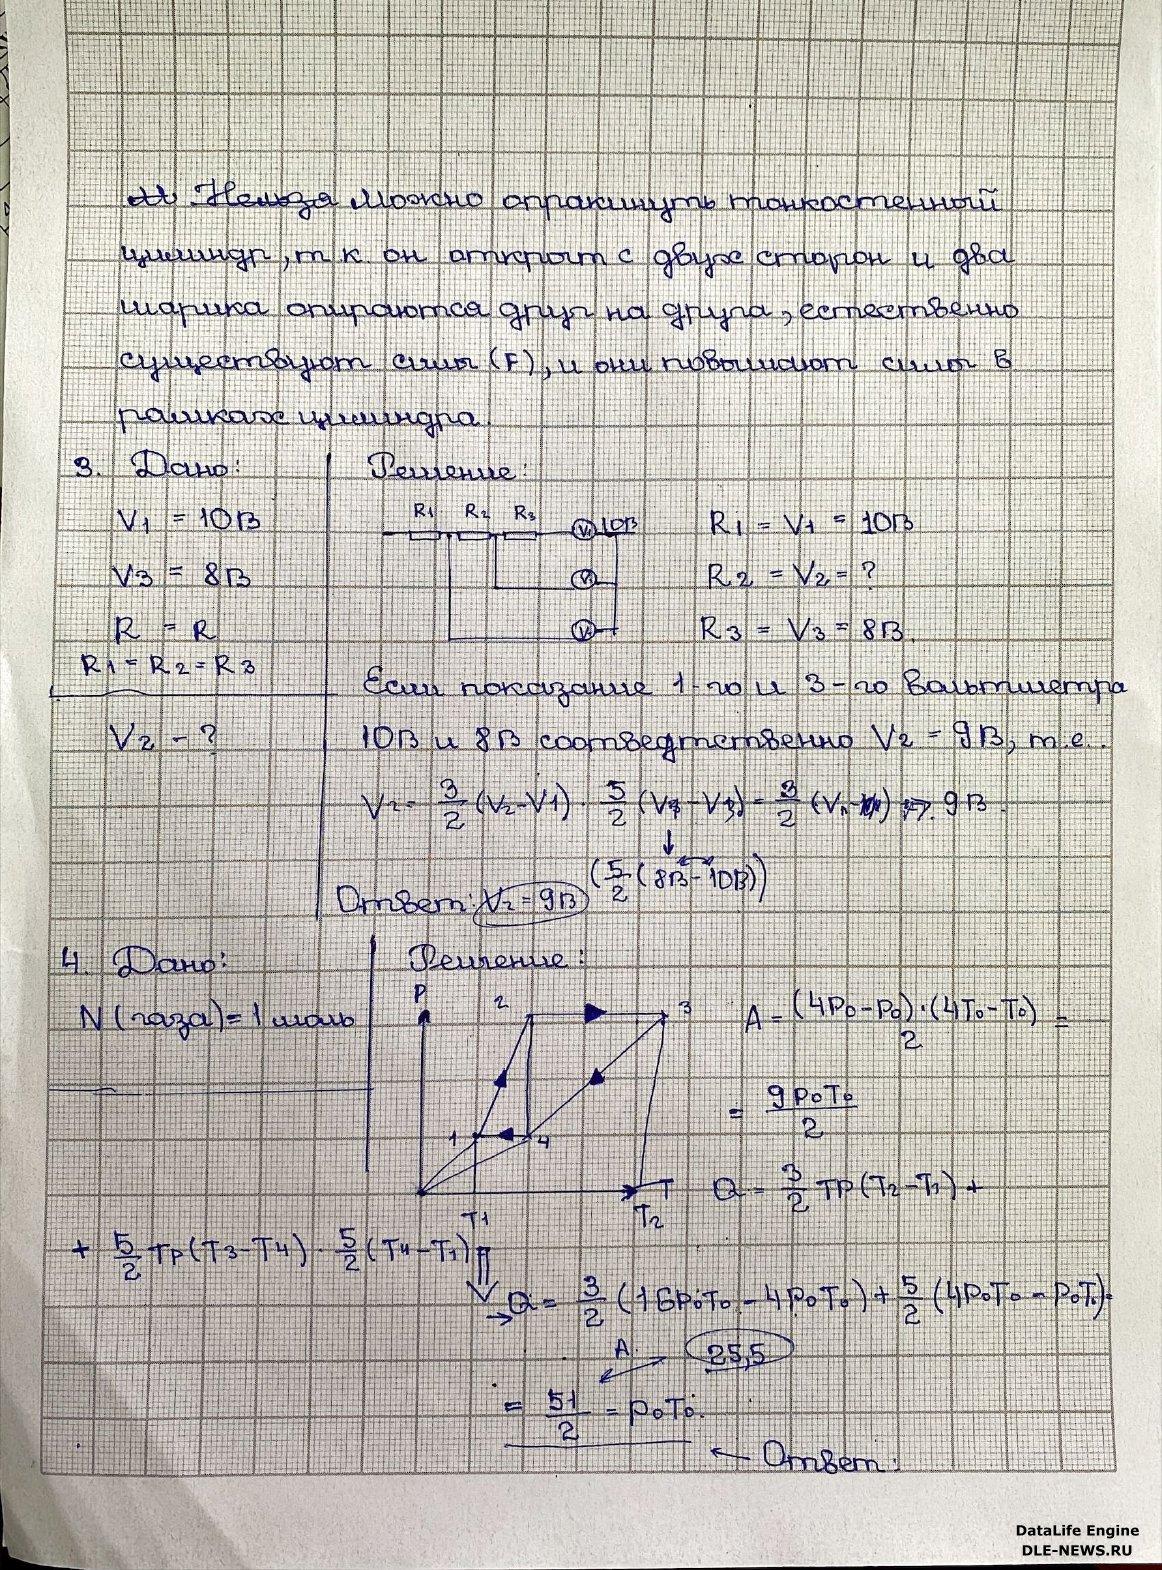 Нельзя Можно опракинуть тонкостенный
цилиндр, т к. он открыт с двух сторон и два
шарика опираются друг на друга, естественно
существуют силы (F), и они повышают силы в
рамках цилиндра.
3. Дано:
V1 = 10В
V3 = 8В
R = R
R1 = R2 = R3
V2 - ?
Решение:
R1 R2 R3
V1 10В
R1 = V1 = 10В
R2 = V2 = ?
R3 = V3 = 8В.
Если показание 1-го и 3-го Вольтметра
10В и 8В соотведтственно V2 = 9В, т.е..
V2 = 3/2 (V2-V1) · 5/2 - 3/2 9В.
(5/2 (8В - 10В))
Ответ: V2 = 9В
4. Дано:
N (газа) = 1 моль
Решение:
P
2 3
1 4
T
T1 T2
A = (4P0-P0)·(4T0-T0)/2 =
= 9P0T0/2
Q = 3/2 TP(T2-T1) +
+ 5/2 TP(T3-T4) · 5/2 (T4-T1)
Q = 3/2 (16P0T0 - 4P0T0) + 5/2 (4P0T0 - P0T0) =
A 25,5
= 51/2 = P0T0.
Ответ:
DataLife Engine
DLE-NEWS.RU